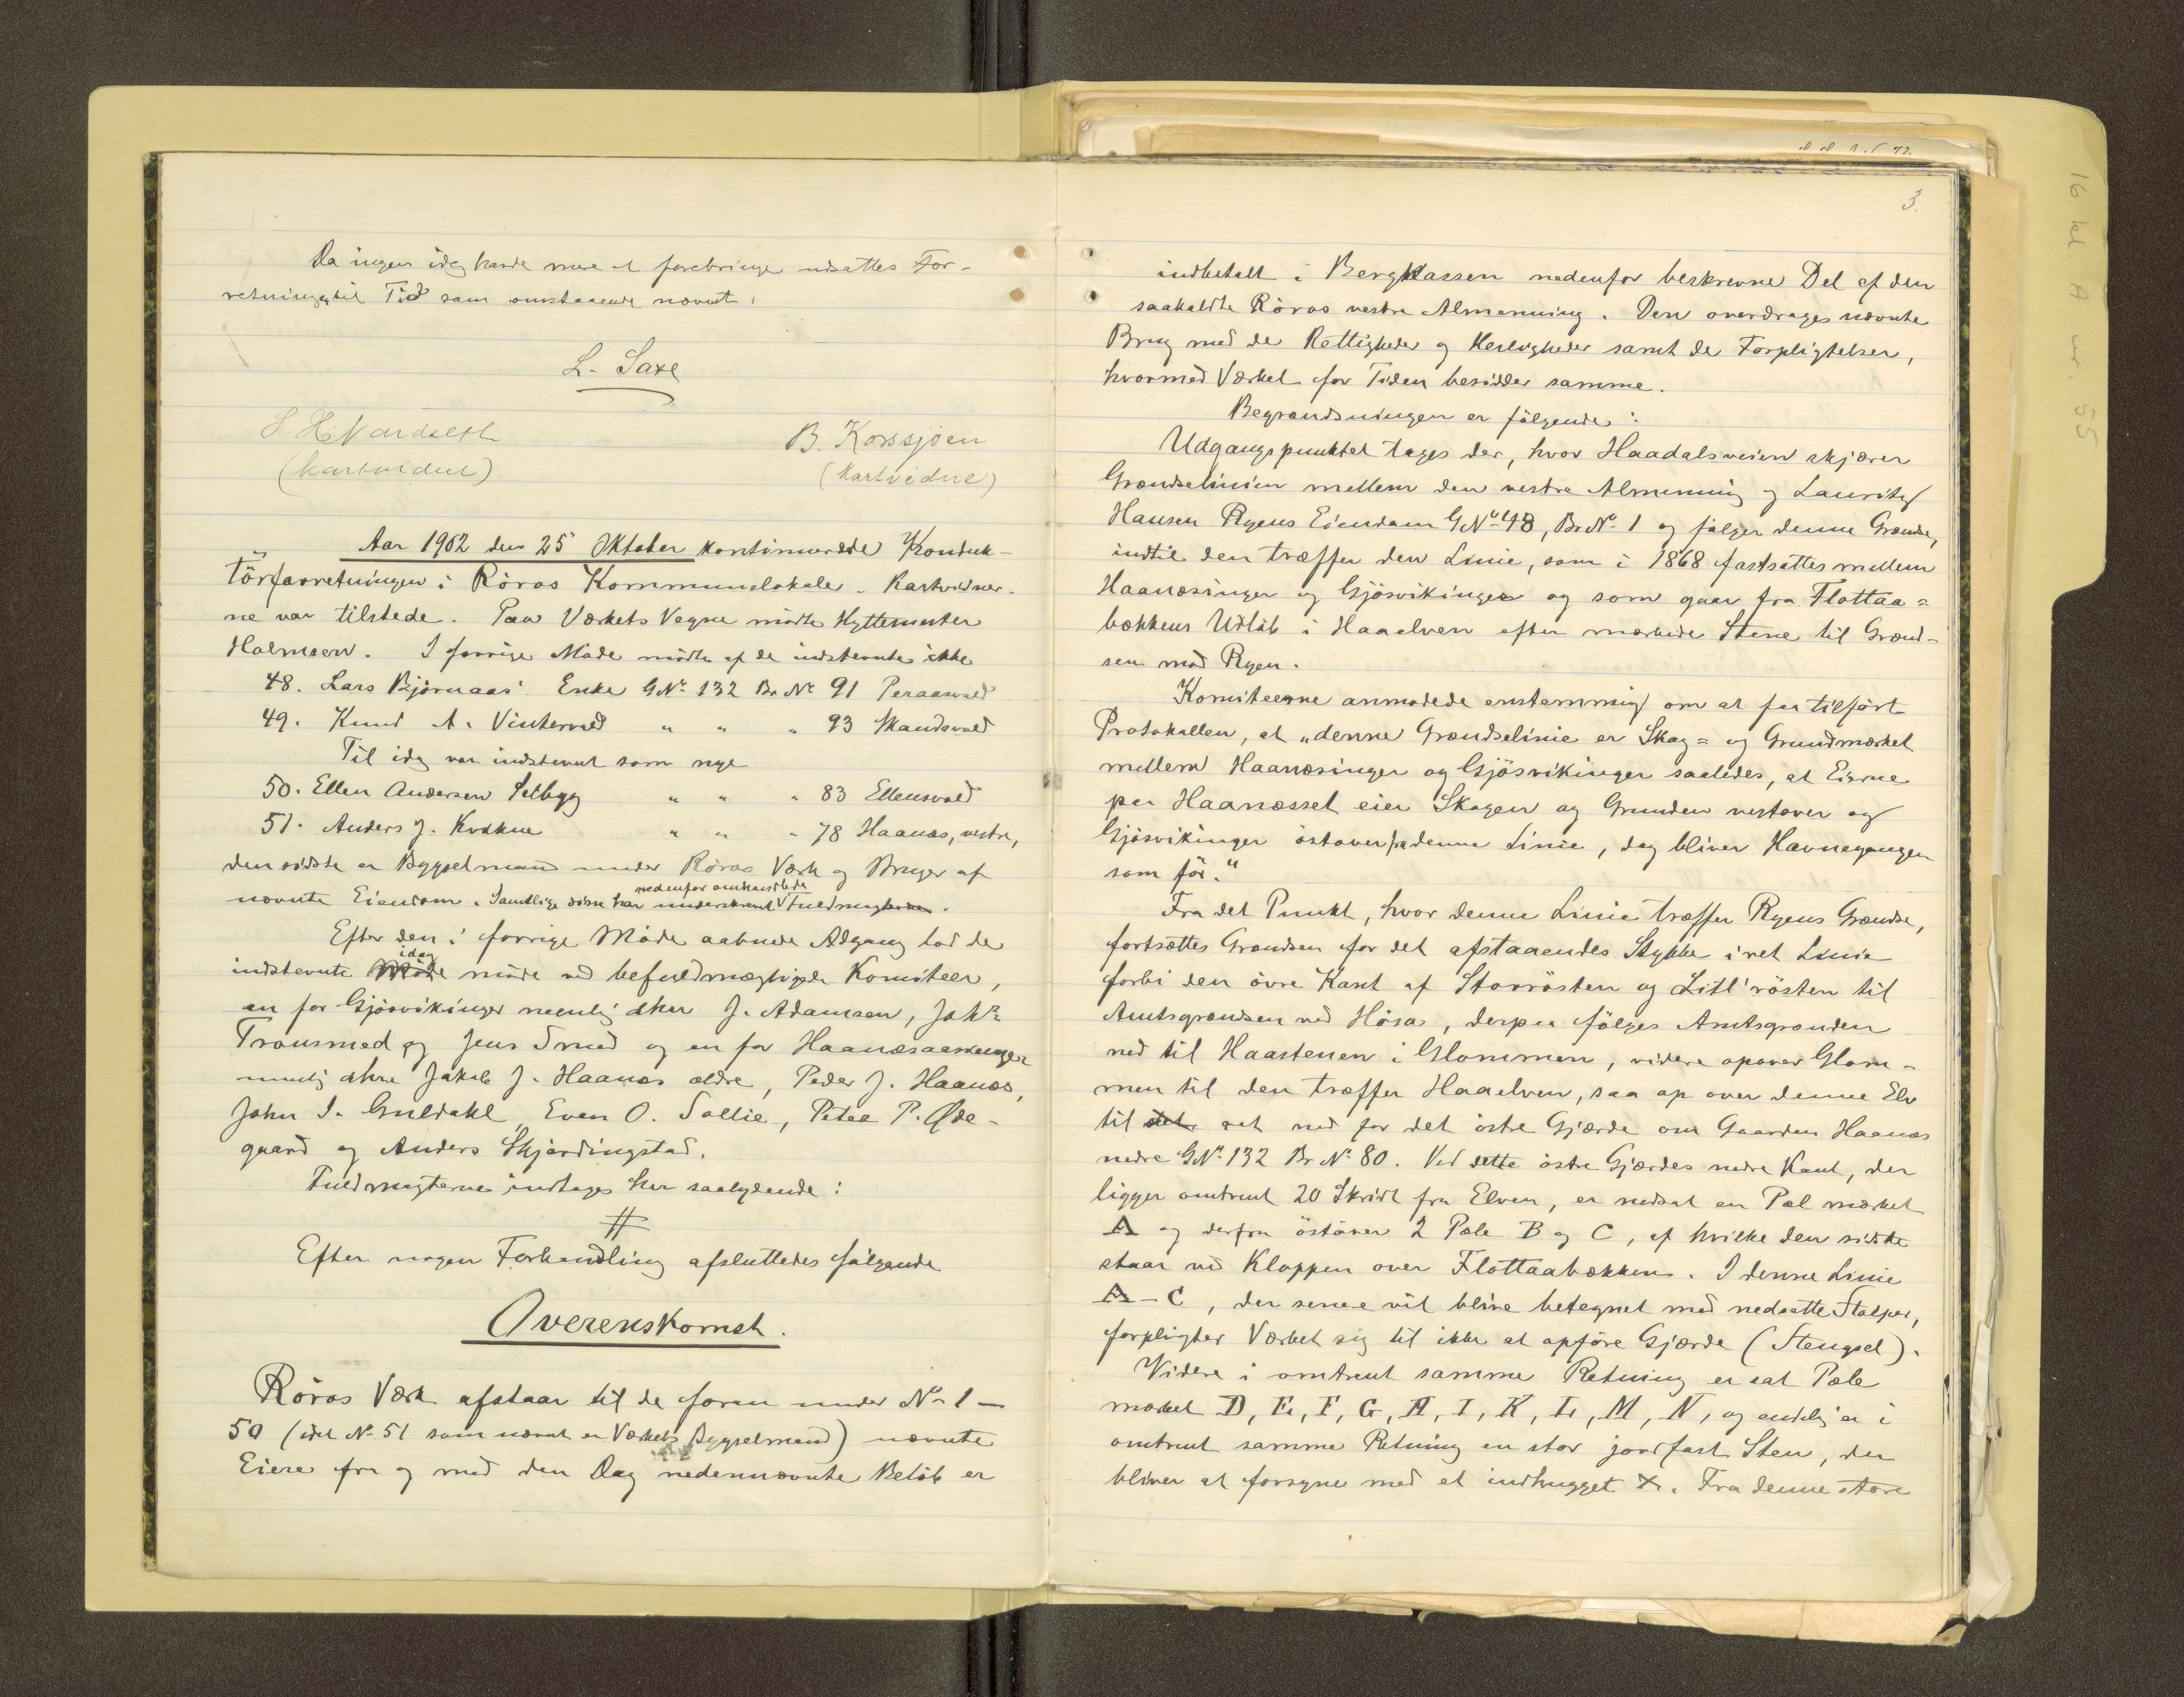 Da ingen idag havde mere at forebringe udsattes For-
retningen til Tid som omstaaende nævnt.
L. Saxe
S. H. Nordseth
(Kartvidne)
B. Korssjøen
(Kartvidne)
Aar 1902 den 25' Oktober kontinuerede Konduk-
törforretningen i Röros Kommunelokale. Kartvidner-
ne var tilstede. Paa Værkets Vegne mödte Hyttemester
Holmsen. I forrige Möde mödte af de indstevnte ikke
48. Lars Björnaas' Enke GNo 132 Br No 91 Peraasvold
49. Knud A. Vintervold " " " 93 Skandsvold
Til idag var indstevnt som nye
50. Ellen Andersen Selbyg " " " 83 Ellensvold
51. Anders J. Kvikne " " " 78 Haanæs, vestre,
den sidste er Bygselmand under Röros Værk og Bruger af
nævnte Eiendom. Samtlige disse har underskrevet nedenfor omhandlede Fuldmagter.
Efter den i forrige Möde aabnede Adgang lod de
indstevnte idag möde ved befuldmægtigede Komiteer,
en for Gjösvikinger nemlig dhrr J. Adamsen, Johs
Tronsmed og Jens Smed og en for Haanæsinger
nemlig dhrr Jakob J. Haanæs ældre, Peder J. Haanæs,
John I. Guldahl, Even O. Sollie, Peter P. Øde-
gaard og Anders Skjördingstad.
Fuldmagterne indtages her saalydende:
#
Efter nogen Forhandling afsluttedes fölgende
Overenskomst.
Röros Værk afstaar til de foran under No 1 -
50 (idet No 51 som nævnt er Værkets Bygselmand) nævnte
Eiere fra og med den Dag nedennævnte Belöb er
3.
indbetalt i Bergkassen nedenfor beskrevne Del af den
saakaldte Röros vestre Almenning. Den overdrages nævnte
Brug med de Rettigheder og Herligheder samt de Forpligtelser,
hvormed Værket for Tiden besidder samme.
Begrændsningen er fölgende:
Udgangspunktet tages der, hvor Haadalsveien skjærer
Grændselinien mellem den vestre Almenning og Lauritz
Hansen Ryens Eiendom GNo 48, Br No 1 og fölger denne Grændse,
indtil den træffer den Linie, som i 1868 fastsattes mellem
Haanæsinger og Gjösvikinger og som gaar fra Flottaa=
bækkens Udlöb i Haaelven efter mærkede Stene til Grænd-
sen mod Ryen.
Komiteerne anmodede enstemmig om at faa tilfört
Protokollen, at „denne Grændselinie er Skog= og Grundmærket
mellem Haanæsinger og Gjösvikinger saaledes, at Eierne
paa Haanæsset eier Skogen og Grunden vestover og
Gjösvikinger östover fra denne Linie, dog bliver Havnegangen
som för."
Fra det Punkt, hvor denne Linie træffer Ryens Grændse,
fortsættes Grændsen for det afstaaendes Stykke i ret Linie
forbi den övre Kant af Storrösten og Litl'rösten til
Amtsgrændsen ved Hösa, derpaa fölges Amtsgrændsen
ned til Haastenen i Glommen, videre opover Glom-
men til den træffer Haaelven, saa op over denne Elv
til ret ned for det östre Gjærde om Gaarden Haanæs
nedre GNo 132 Br No 80. Ved dette östre Gjærdes nedre Kant, der
ligger omtrent 20 Skridt fra Elven, er nedsat en Pæl mærket
A og derfra östover 2 Pæle B og C, af hvilke den sidste
staar ved Kloppen over Flottaabækken. I denne Linie
A - C, der senere vil blive betegnet med nedsatte Stolper,
forpligter Værket sig til ikke at opföre Gjærde (Stengsel).
Videre i omtrent samme Retning er sat Pæle
mærket D, E, F, G, H, I, K, L, M, N, og endelig er i
omtrent samme Retning en stor jordfast Sten, der
bliver at forsyne med et indhugget X. Fra denne store
16 hd A nr. 55